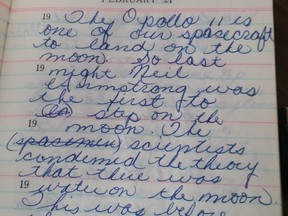 FEBRUARY 21
19 The Opollo 11 is
one of our spacecraft
to land on the
moon. So last
19 night Neil
Armstrong was
the first to
step on the
19 moon. The
(spacemen) scientists
condemed the theory
that there was
19 water on the moon.
This was before